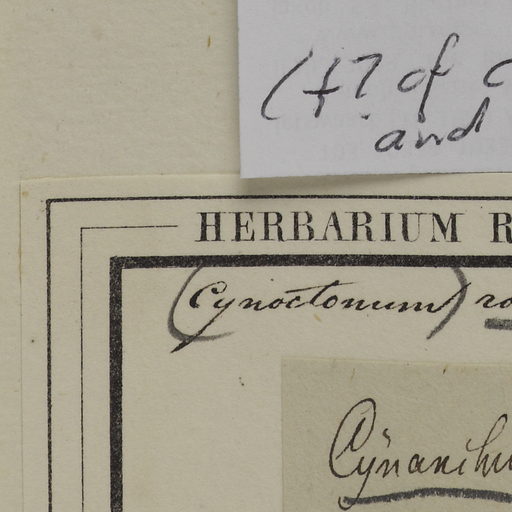 (f? of
and
HERBARIUM R
(Cynoctonum) ro
Cynanchu